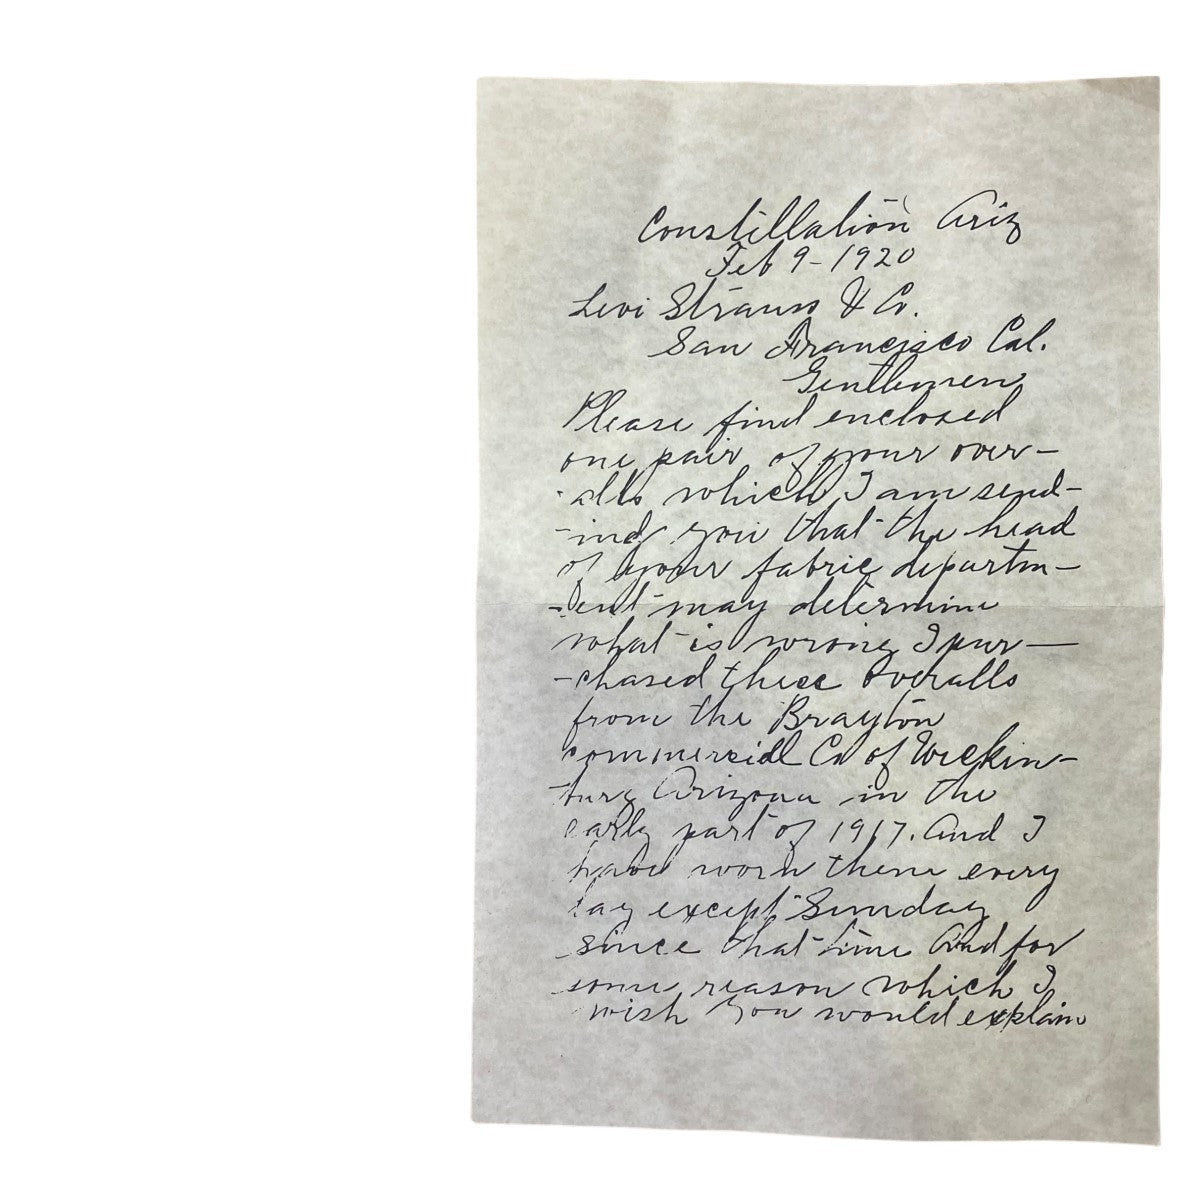 Constillation Ariz
Feb 9-1920
Levi Strauss & Co.
San Francisco Cal.
Gentlemen
Please find enclosed
one pair of your over-
alls which I am send-
-ing you that the head
of your fabric departm-
-ent may determine
what is wrong I pur-
-chased these overalls
from the Brayton
commercial Co of Wickin-
burg Arizona in the
early part of 1917. And I
have worn them every
day except Sunday
since that time and for
some reason which I
wish you would explain